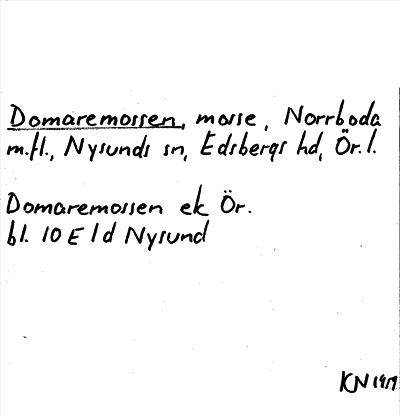 Domaremossen, mosse, Norrboda
m.fl., Nysunds sn, Edsbergs hd, Ör.l.
Domaremossen ek Ör.
bl. 10 E 1d Nysund
KN